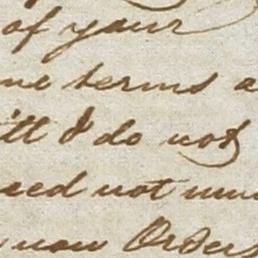 of your
me terms a
ill I do not
eed not
Orders